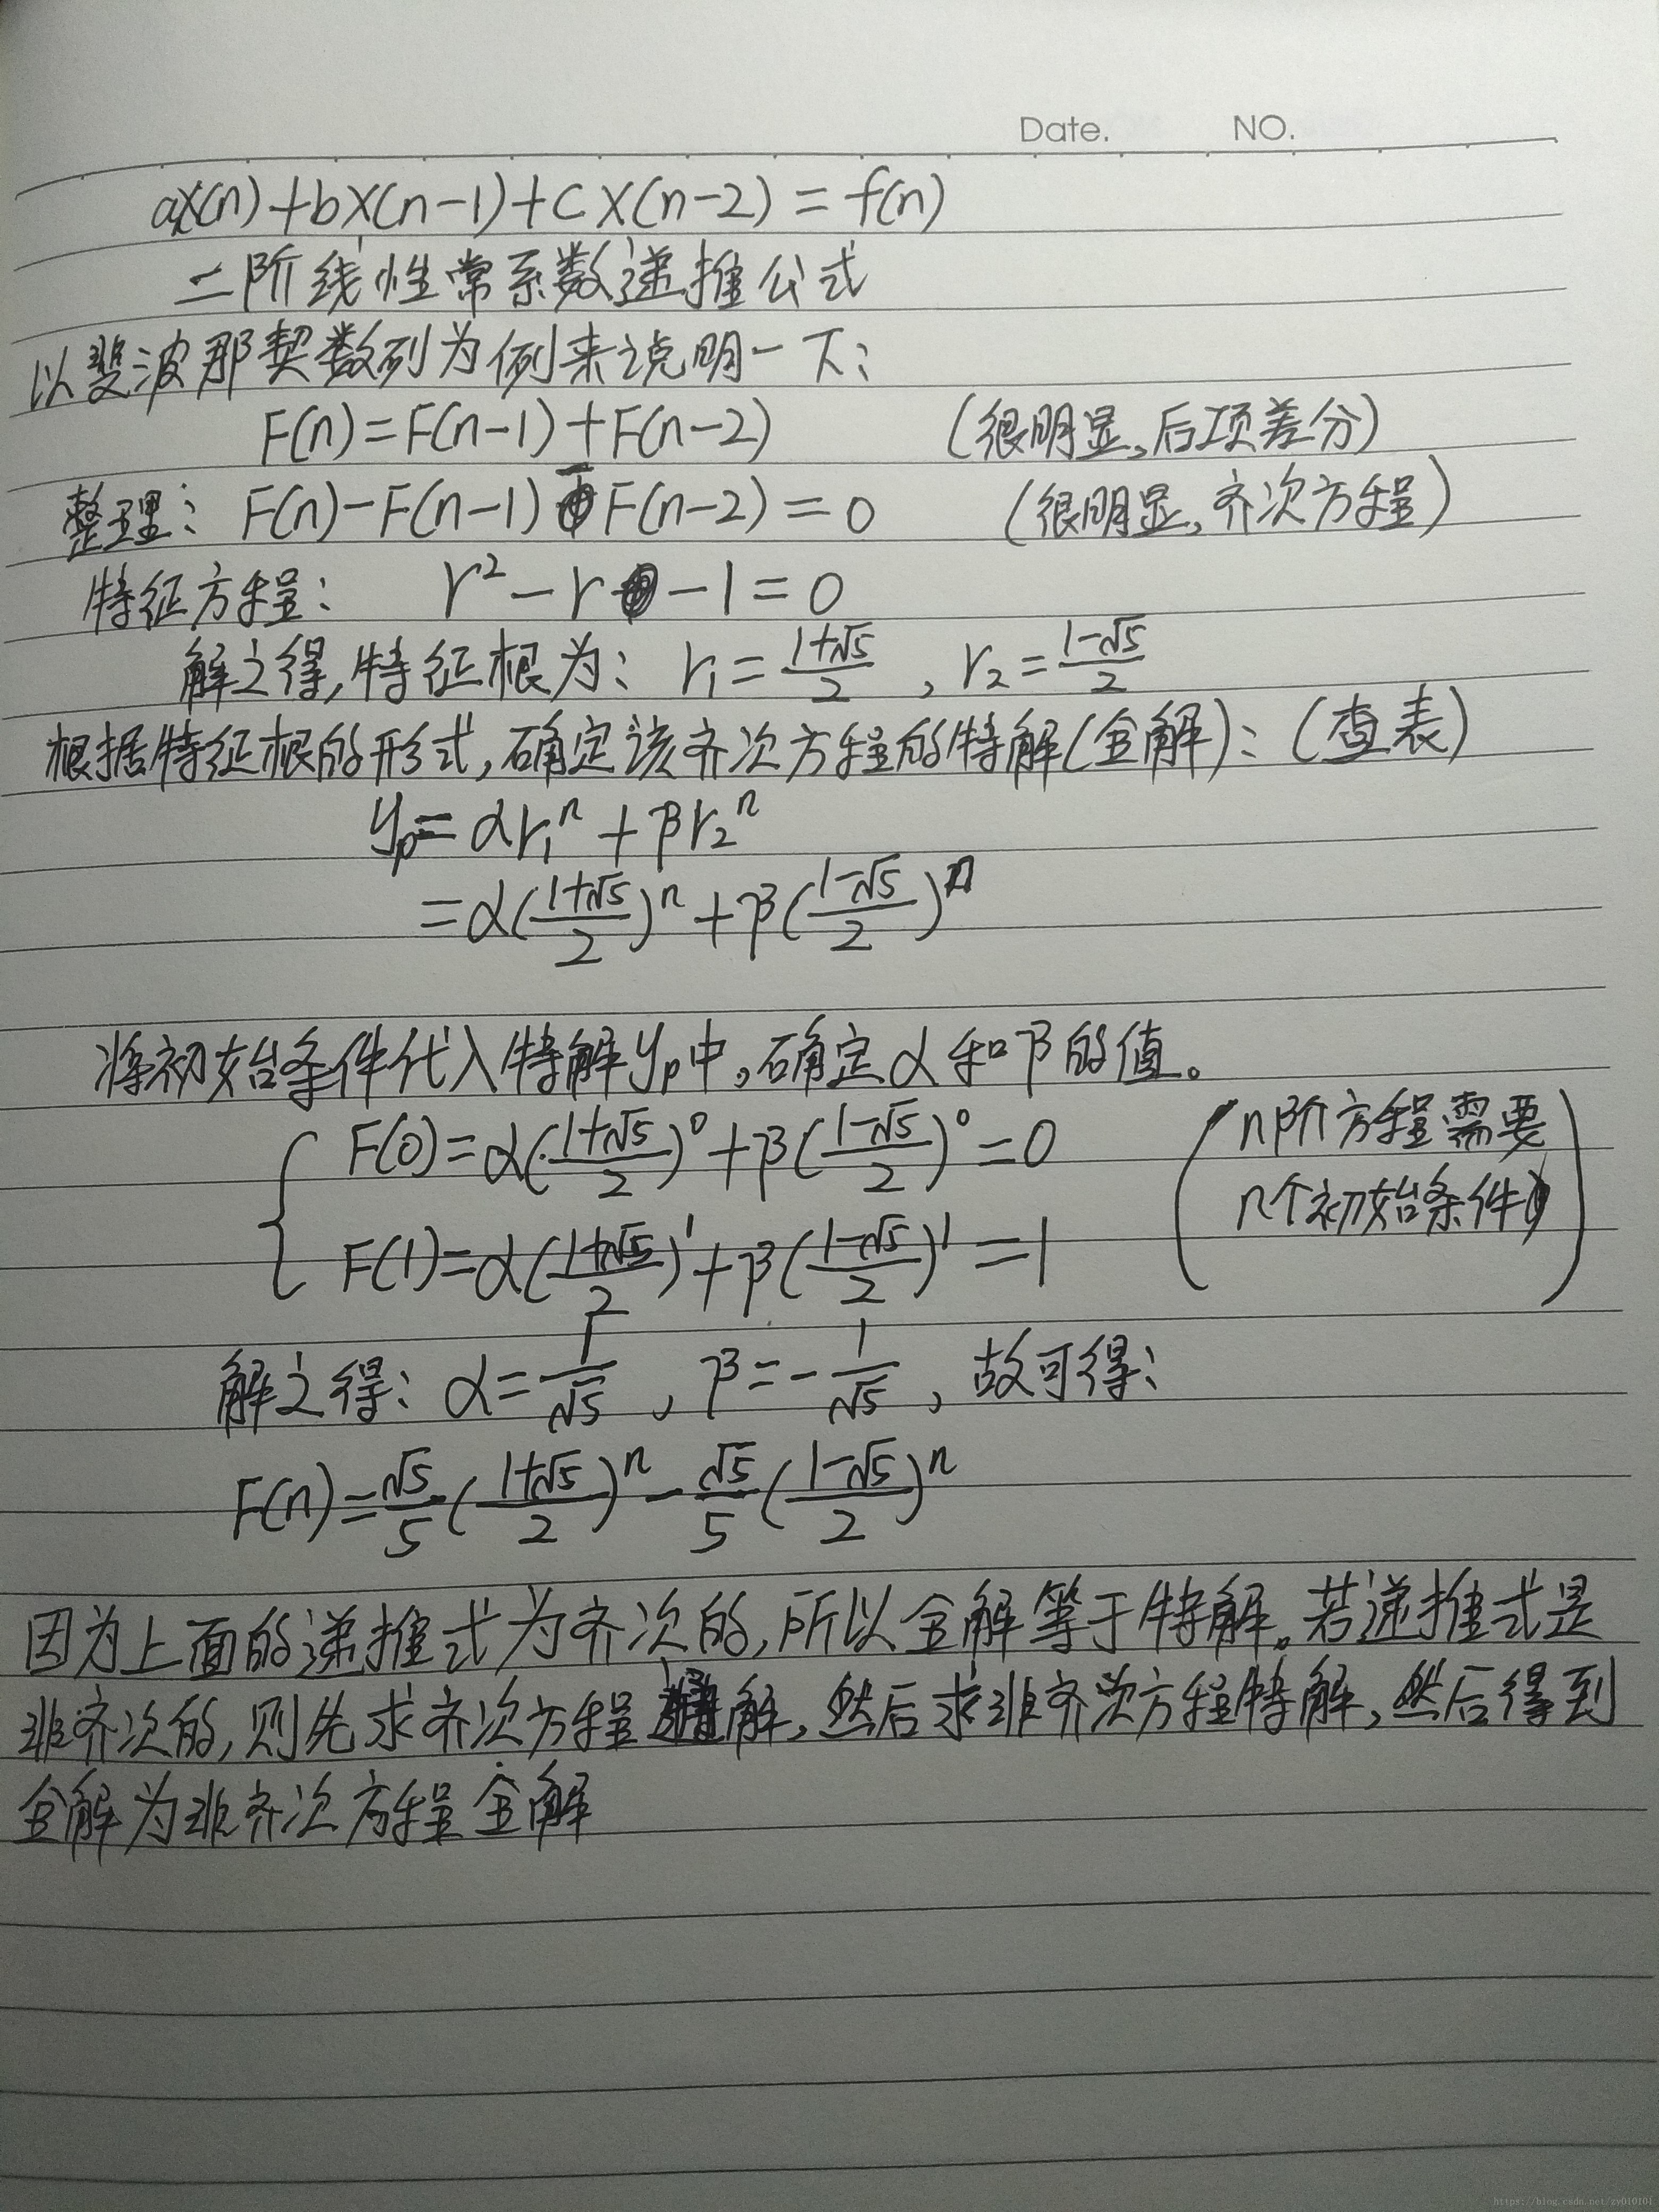 Date. NO.
ax(n)+bx(n-1)+cx(n-2)=f(n)
二阶线性常系数递推公式
以斐波那契数列为例来说明一下:
F(n)=F(n-1)+F(n-2) (很明显,后项差分)
整理: F(n)-F(n-1)-F(n-2)=0 (很明显,齐次方程)
特征方程: r²-r-1=0
解之得,特征根为: r₁=(1+√5)/2 , r₂=(1-√5)/2
根据特征根的形式,确定该齐次方程的特解(全解):(查表)
yₚ=αr₁ⁿ+βr₂ⁿ
=α((1+√5)/2)ⁿ+β((1-√5)/2)ⁿ
将初始条件代入特解yₚ中,确定α和β的值。
F(0)=α((1+√5)/2)⁰+β((1-√5)/2)⁰=0 (n阶方程需要
F(1)=α((1+√5)/2)¹+β((1-√5)/2)¹=1 n个初始条件)
解之得: α=1/√5 , β=-1/√5 , 故可得:
F(n)=√5/5((1+√5)/2)ⁿ-√5/5((1-√5)/2)ⁿ
因为上面的递推式为齐次的,所以全解等于特解。若递推式是
非齐次的,则先求齐次方程解,然后求非齐次方程特解,然后得到
全解为非齐次方程全解
https://blog.csdn.net/zy010101